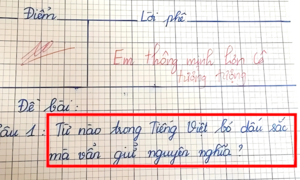 Điểm
Lời phê
Em thông minh hơn cô
tưởng tượng
Đề bài:
Câu 1: Từ nào trong Tiếng Việt bỏ dấu sắc
mà vẫn giữ nguyên nghĩa?